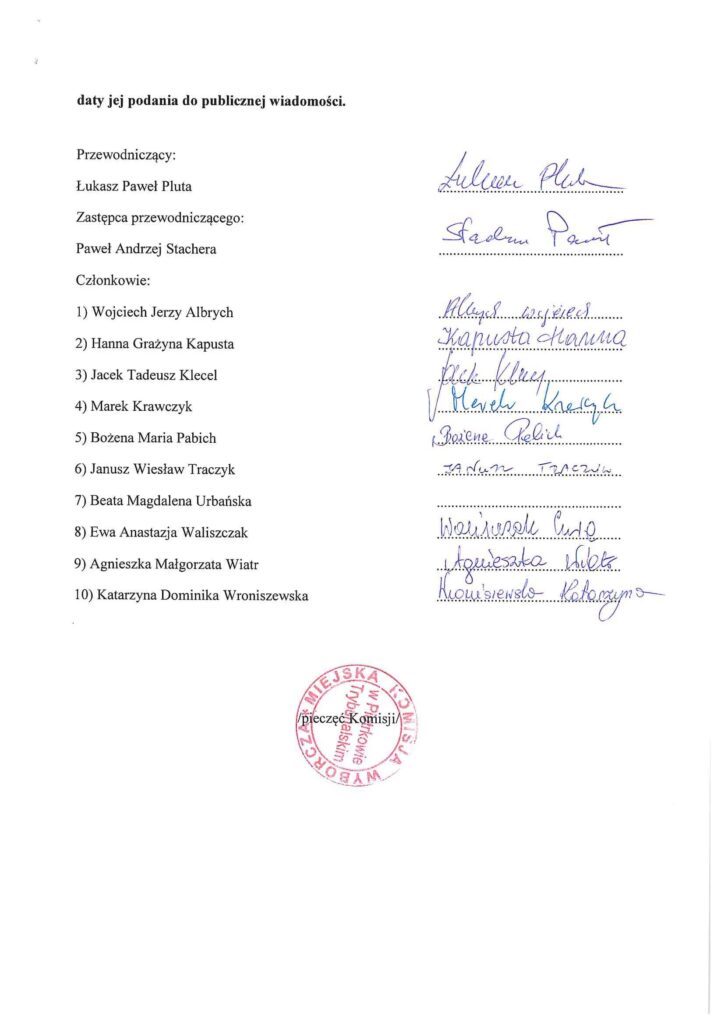 daty jej podania do publicznej wiadomości.
Przewodniczący:
Łukasz Paweł Pluta
Łukasz Pluta
Zastępca przewodniczącego:
Paweł Andrzej Stachera
Paweł
Członkowie:
1) Wojciech Jerzy Albrych
Albrych Wojciech
2) Hanna Grażyna Kapusta
Kapusta Hanna
3) Jacek Tadeusz Klecel
Jacek
4) Marek Krawczyk
Marek Krawczyk
5) Bożena Maria Pabich
Bożena Pabich
6) Janusz Wiesław Traczyk
JANUSZ TRACZYK
7) Beata Magdalena Urbańska
8) Ewa Anastazja Waliszczak
Waliszczak Ewa
9) Agnieszka Małgorzata Wiatr
Agnieszka Wiatr
10) Katarzyna Dominika Wroniszewska
Wroniszewska Katarzyna
/pieczęć Komisji/
MIEJSKA KOMISJA WYBORCZA
w Piotrkowie
Trybunalskim